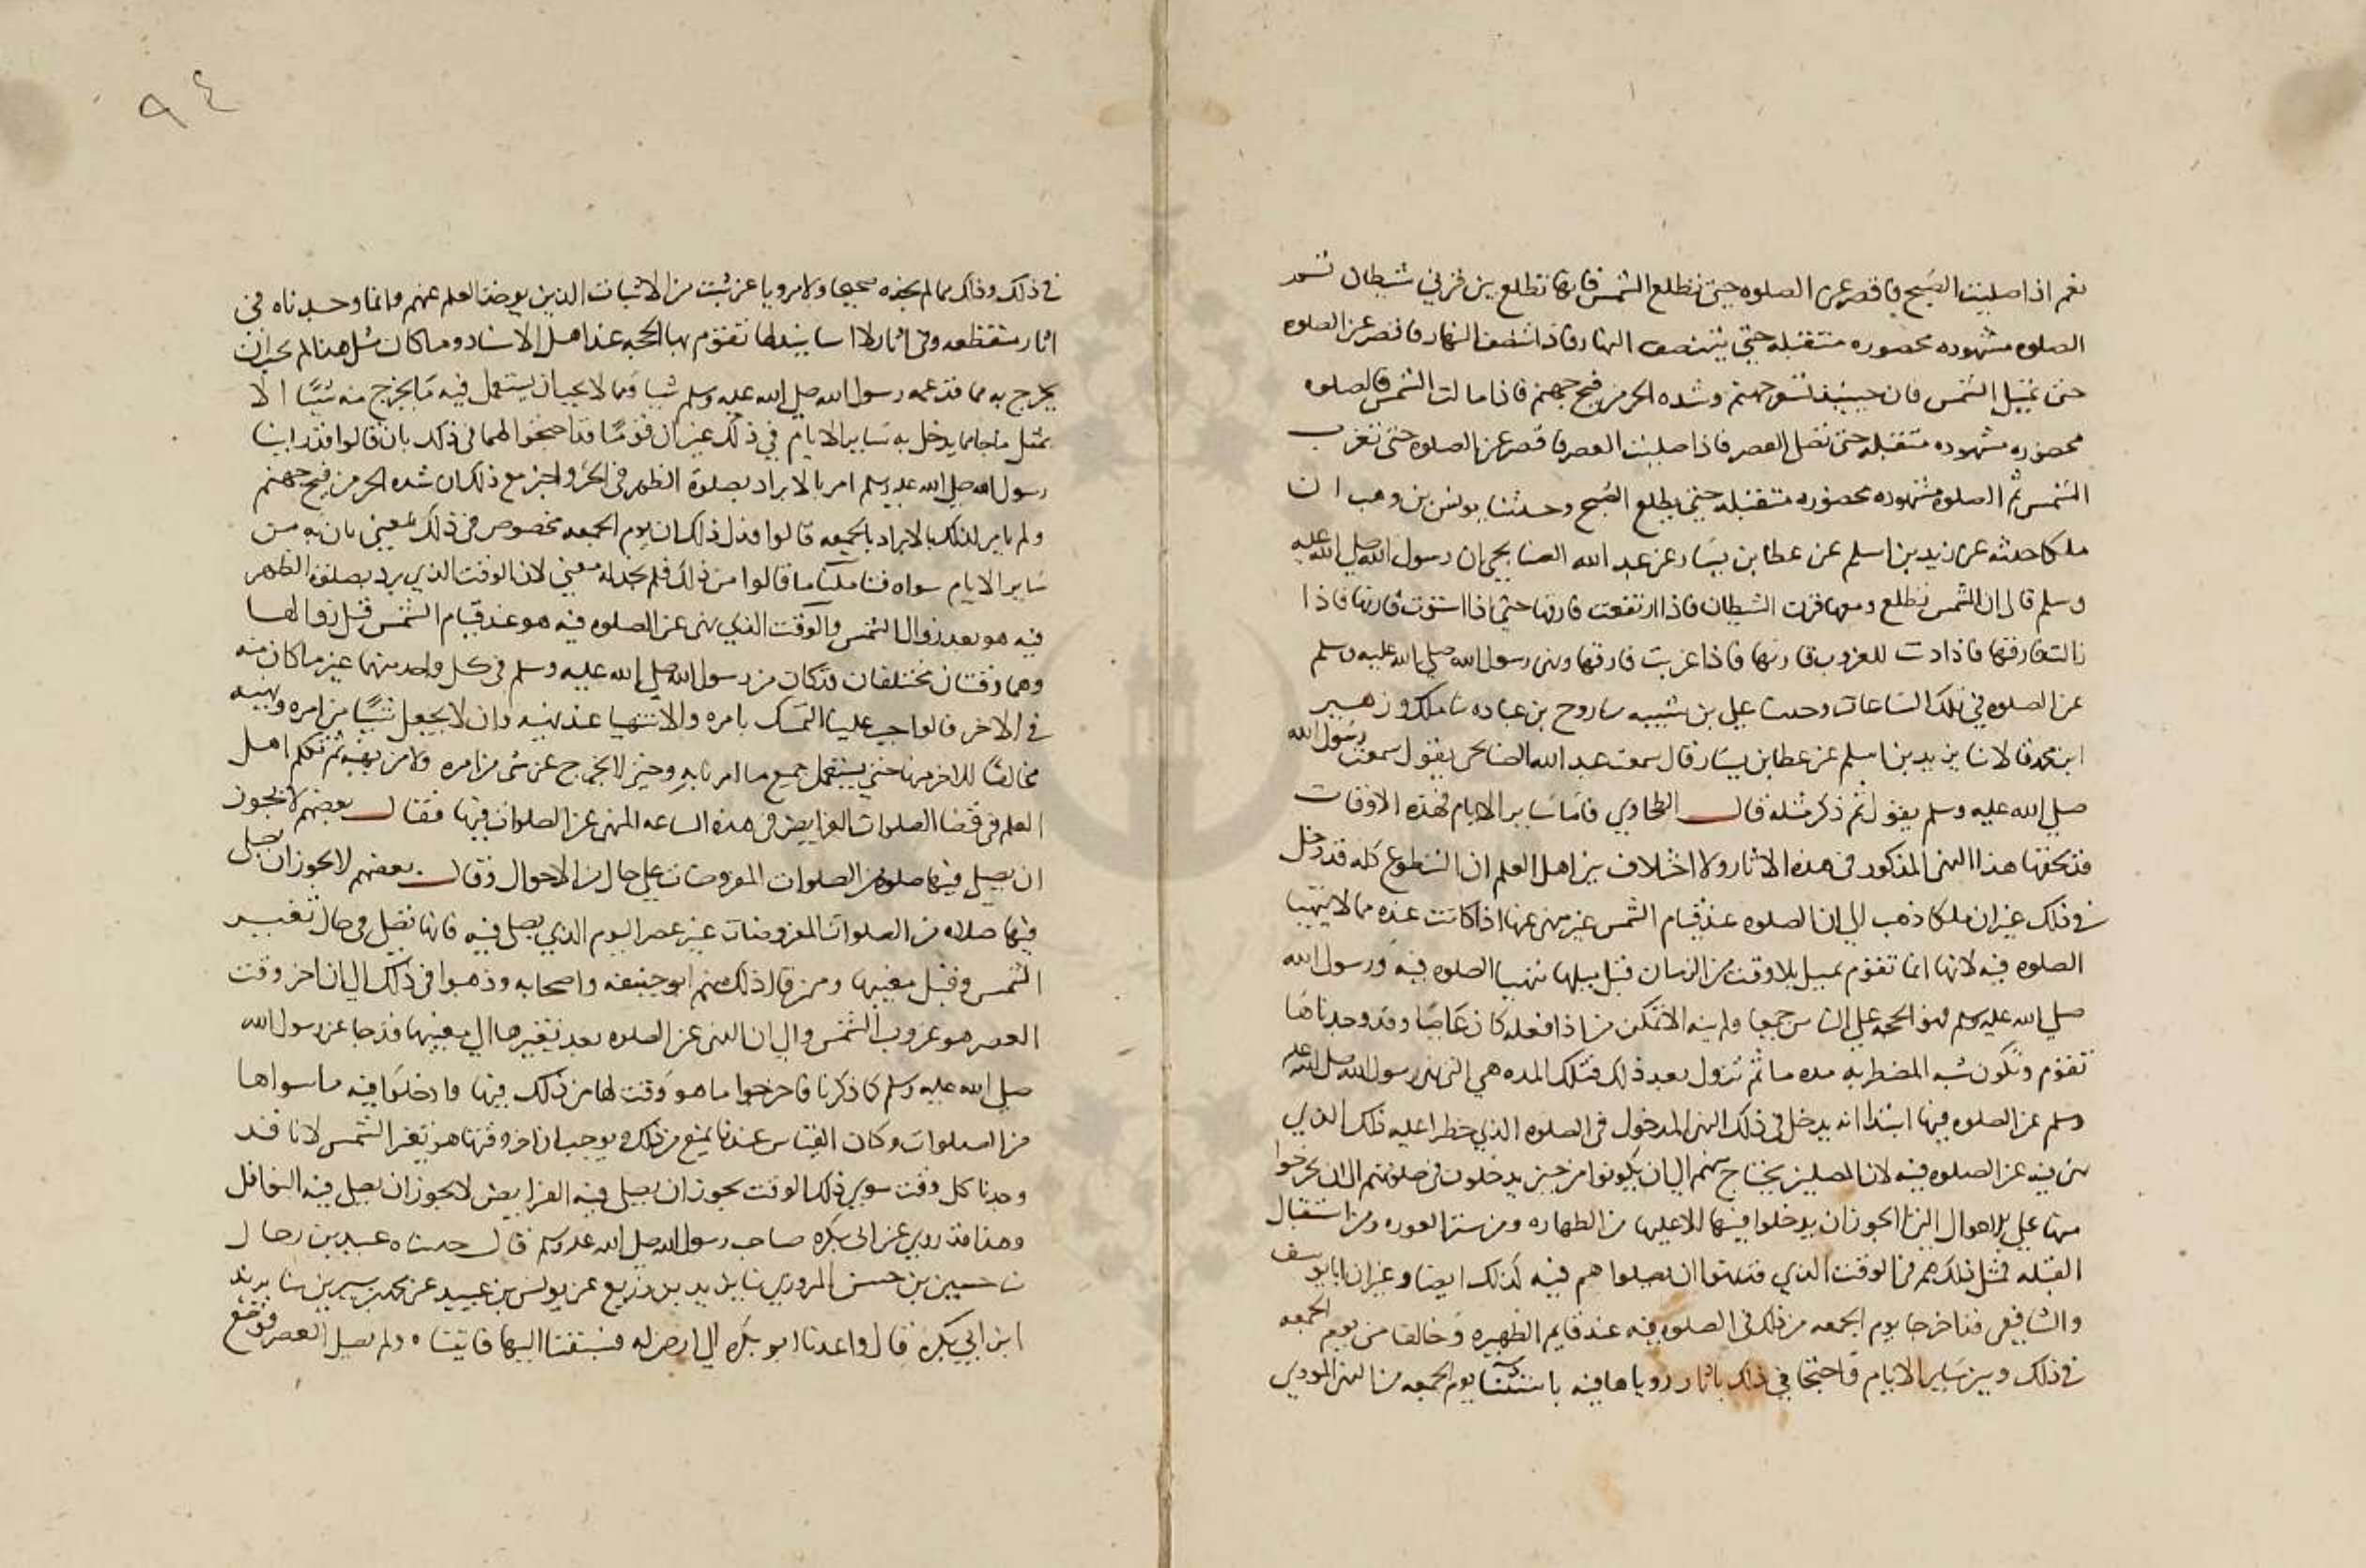 نعم اذا صليت الصبح فاقصر عن الصلوه حتى تطلع الشمس فانها تطلع بين قرني شيطان ثم
الصلوه مشهوده محضوره متقبله حتى ينتصف النهار فاذا انتصف النهار فاقصر عن الصلوه
حتى تميل الشمس فان حينئذ تسعر جهنم وشده الحر من فيح جهنم فاذا مالت الشمس فالصلوه
محضوره مشهوده متقبله حتى تصلى العصر فاذا صليت العصر فاقصر عن الصلوه حتى تغرب
الشمس ثم الصلوه مشهوده محضوره متقبله حتى يطلع الصبح وحدثنا يونس بن وهب ان
ملكا حدثه عن زيد بن اسلم عن عطا بن يسار عن عبد الله الصنابحي ان رسول الله صلى الله عليه
وسلم قال ان الشمس تطلع ومعها قرن الشيطان فاذا ارتفعت فارقها حتى اذا استوت قارنها فاذا
زالت فارقها فاذا دنت للغروب قارنها فاذا غربت فارقها ونهى رسول الله صلى الله عليه وسلم
عن الصلوه في تلك الساعات وحدثنا علي بن شيبه نا روح بن عباده نا ملك وزهير
ابن محمد قالا نا زيد بن اسلم عن عطا بن يسار قال سمعت عبد الله الصنابحي يقول سمعت رسول الله
صلى الله عليه وسلم يقول ثم ذكر مثله قال الطحاوي فاما ساير الايام فهذه الاوقات
قد لحقها هذا النهى المذكور في هذه الاثار ولا اختلاف بين اهل العلم ان التطوع كله قد دخل
في ذلك غير ان ملكا ذهب الى ان الصلوه عند قيام الشمس غير منهى عنها اذا كانت عنده مما لا يتهيا
الصلوه فيه لانها انما تقوم تميل بلا وقت من الزمان قبل ميلها تتهيا الصلوه فيه ورسول الله
صلى الله عليه وسلم فهو الحجه على الناس جميعا ولم ينه الا ممكن من اذا فعله كان عاصيا وقد وجدناها
تقوم وتكون شبه المضطربه مده ما ثم تزول بعد ذلك فتلك المده هي التي نهى رسول الله صلى الله عليه
وسلم عن الصلوه فيها ابتدا انه يدخل في ذلك النهى المدخول في الصلوه الذي خطرا عليه ذلك الذي
نهى فيه عن الصلوه فيه لان المصلين يحتاج منهم الى ان يكونوا من حين يدخلون في صلوتهم الى ان يخرجوا
منها على الاحوال التي لا يجوز ان يدخلوا فيها الا عليها من الطهاره ومن ستر العوره ومن استقبال
القبله فمثل ذلك هم في الوقت الذي منعوا ان يصلوا هم فيه كذلك ايضا وغير ان ابا يوسف
والشافعي قد اخرجا يوم الجمعه من ذلك في الصلوه فيه عند قايم الظهيره وخالفا من يوم الجمعه
في ذلك وبين ساير الايام واحتجا في ذلك باثار روياها فيه باستثنا يوم الجمعه من النهى المروي
في ذلك وذلك مما لم نجده صحيحا ولا مرويا عن ثبت من الاثبات الذين يوخذ العلم عنهم وانما وجدناه في
اثار منقطعه وفي اثار لا اسانيد لها تقوم بها الحجه عند اهل الاسناد وما كان مثل هذا لم يجز ان
يخرج به مما قد عمه رسول الله صلى الله عليه وسلم شيا ومما لا يجب ان يستعمل فيه ما يخرج منه شيا الا
بمثل ما جا مما يدخل به ساير الايام في ذلك غير ان قوما قد احتجوا لهما في ذلك بان قالوا قد راينا
رسول الله صلى الله عليه وسلم امر بالابراد بصلوة الظهر في الحر واخبر مع ذلك ان شده الحر من فيح جهنم
ولم يامر لذلك بالابراد بالجمعه قالوا فدل ذلك ان يوم الجمعه مخصوص في ذلك بمعنى بان به من
ساير الايام سواه فتاملنا ما قالوا من ذلك فلم نجد له معنى لان الوقت الذي يبرد بصلوة الظهر
فيه هو بعد زوال الشمس والوقت الذي نهى عن الصلوه فيه هو عند قيام الشمس قبل زوالها
وهما وقتان مختلفان قد كان من رسول الله صلى الله عليه وسلم في كل واحد منهما غير ما كان منه
في الاخر فالواجب علينا التمسك بامره والانتهيا عند نهيه وان لا يجعل شيا من امره ونهيه
مخالفا للاخر منها حتى يستعمل جميع ما امرنا به وحتى لا يخرج عن شى من امره ولا من نهيه ثم تكلم اهل
العلم في قضا الصلوات الفرايض في هذه الساعه المنهى عن الصلوات فيها فقال بعضهم لا يجوز
ان يصلى فيها صلوه من الصلوات المفروضات على حال من الاحوال وقال بعضهم لا يجوز ان يصلى
فيها صلاه من الصلوات المفروضات غير عصر اليوم الذي يصلى فيه فانها تصلى في حال تغيير
الشمس وقبل مغيبها وممن قال ذلك منهم ابو حنيفه واصحابه وذهبوا في ذلك الى ان اخر وقت
العصر هو غروب الشمس والى ان النهى عن الصلوه بعد تغيرها الى مغيبها قد جا عن رسول الله
صلى الله عليه وسلم كما ذكرنا فاخرجوا ما هو وقت لها من ذلك فيها وادخلوا فيه ما سواها
من الصلوات وكان القياس عندنا يمنع من ذلك ويوجب ان اخر وقتها هو تغير الشمس لانا قد
وجدنا كل وقت سوى ذلك الوقت يجوز ان يصلى فيه الفرايض لا يجوز ان يصلى فيه النوافل
وهذا قد روي عن ابى بكره صاحب رسول الله صلى الله عليه وسلم قال حدثناه عبيد بن رجال
نا حسين بن حسن المروزي نا يزيد بن زريع عن يونس بن عبيد عن محمد بن سيرين نا يزيد
ابن ابي بكره قال واعدنا ابو بكره الى ارض له فسبقنا اليها فاتيناه ولم يصل العصر فوضع
٩٤